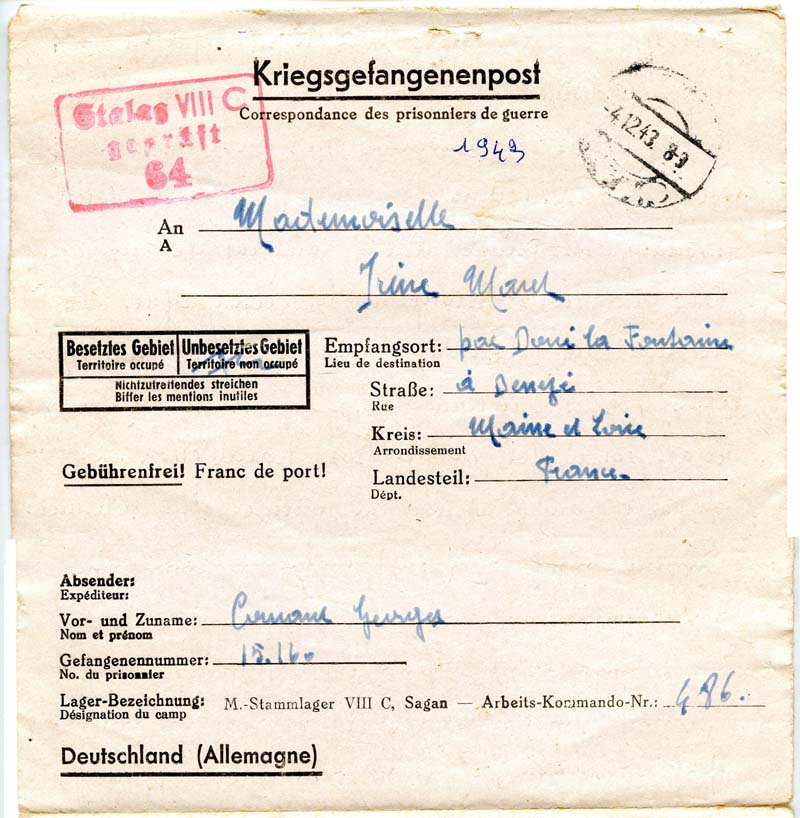 Kriegsgefangenenpost
Correspondance des prisonniers de guerre
Stalag VIII C
geprüft
64
4.12.43. 8-9
1943
An Mademoiselle
A
Irène Morel
Besetztes Gebiet
Territoire occupé
Unbesetztes Gebiet
Territoire non occupé
Nichtzutreffendes streichen
Biffer les mentions inutiles
Empfangsort: par la Fontaine
Lieu de destination
Straße: à
Rue
Kreis: Maine et Loire
Arrondissement
Landesteil: France
Dépt.
Gebührenfrei! Franc de port!
Absender:
Expéditeur:
Vor- und Zuname: Georges
Nom et prénom
Gefangenennummer: 15.160
No. du prisonnier
Lager-Bezeichnung: M.-Stammlager VIII C, Sagan — Arbeits-Kommando-Nr.: 486.
Désignation du camp
Deutschland (Allemagne)